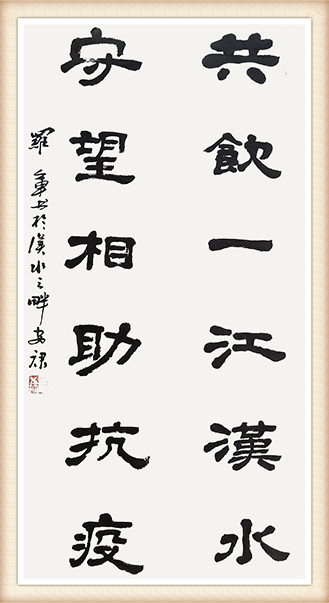 共飲一江漢水
守望相助抗疫
羅軍書於漢水之畔安康